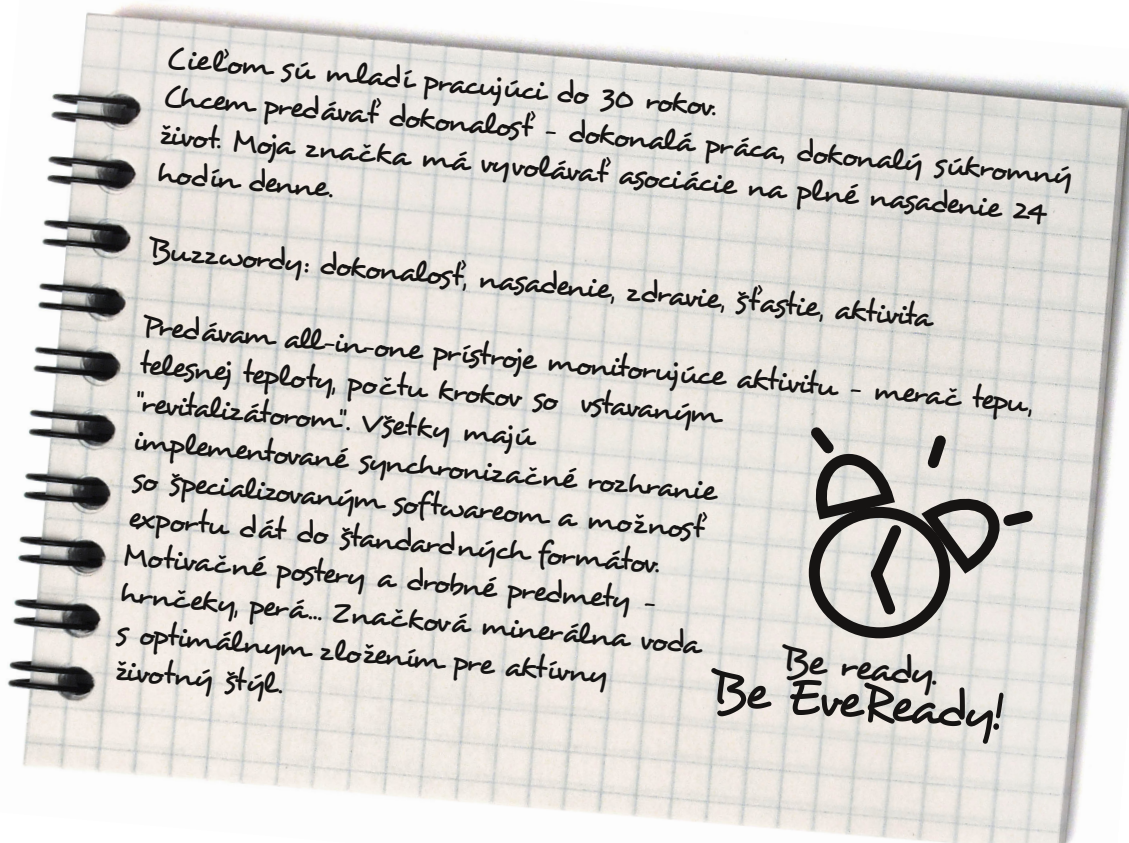 Cieľom sú mladí pracujúci do 30 rokov.
Chcem predávať dokonalosť - dokonalá práca, dokonalý súkromný
život. Moja značka má vyvolávať asociácie na plné nasadenie 24
hodín denne.
Buzzwordy: dokonalosť, nasadenie, zdravie, šťastie, aktivita
Predávam all-in-one prístroje monitorujúce aktivitu - merač tepu,
telesnej teploty, počtu krokov so vstavaným
"revitalizátorom". Všetky majú
implementované synchronizačné rozhranie
so špecializovaným softwareom a možnosť
exportu dát do štandardných formátov.
Motivačné postery a drobné predmety -
hrnčeky, perá... Značková minerálna voda
s optimálnym zložením pre aktívny
životný štýl.
Be ready.
Be EveReady!